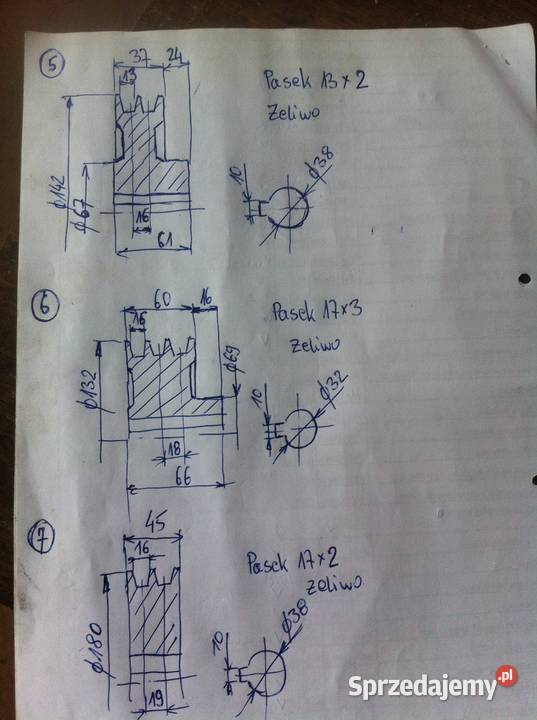 5
37 24
13
Pasek 13×2
Żeliwo
ϕ142
ϕ67
16
61
10
ϕ38
6
60 16
16
Pasek 17×3
żeliwo
ϕ132
ϕ69
18
66
10
ϕ32
7
45
16
Pasek 17×2
żeliwo
ϕ180
19
10
ϕ38
Sprzedajemy.pl